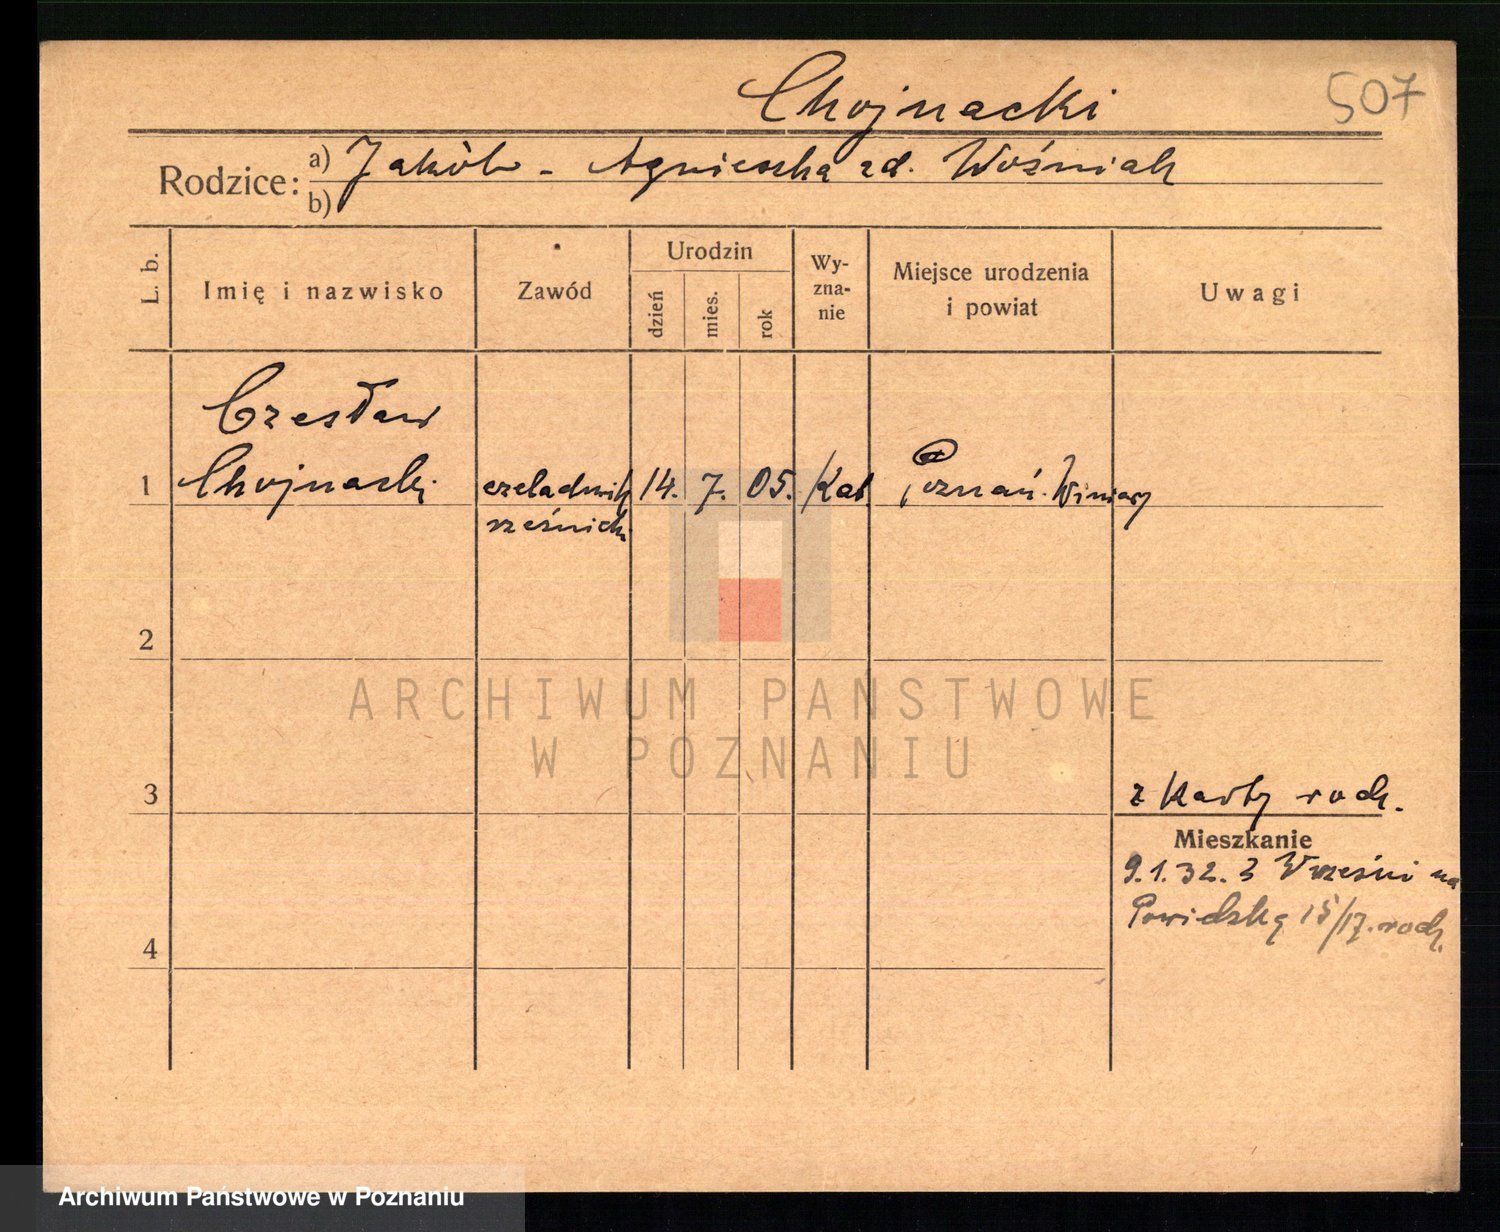 Chojnacki
507
Rodzice:
a) Jakób - Agnieszka zd. Woźniak
b)
L. b.
Imię i nazwisko
Zawód
Urodzin
dzień
mies.
rok
Wy-
zna-
nie
Miejsce urodzenia
i powiat
Uwagi
Czesław
1 Chojnacki czeladnik 14. 7. 05. Kat. Poznań-Winiary
rzeźnicki
2
ARCHIWUM PAŃSTWOWE
W POZNANIU
3
z Karty rodz.
Mieszkanie
9.1.32. z Wrześni na
Powidzką 15/17. rodz.
4
Archiwum Państwowe w Poznaniu